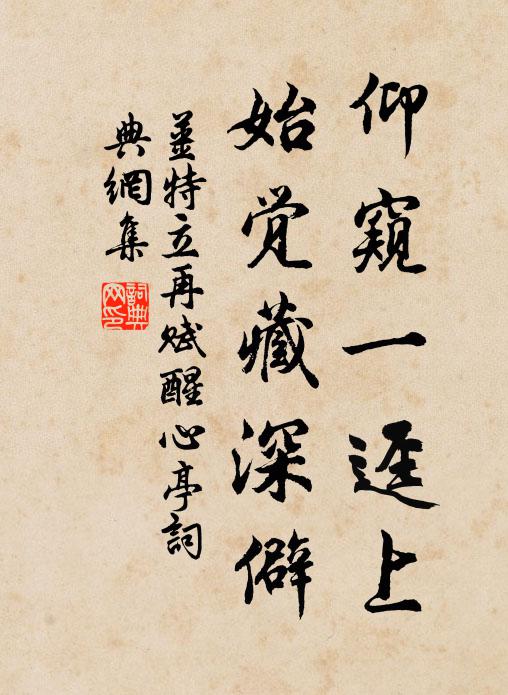 仰窥一迳上
始觉藏深僻
姜特立再赋醒心亭词
典網集
詞典網印